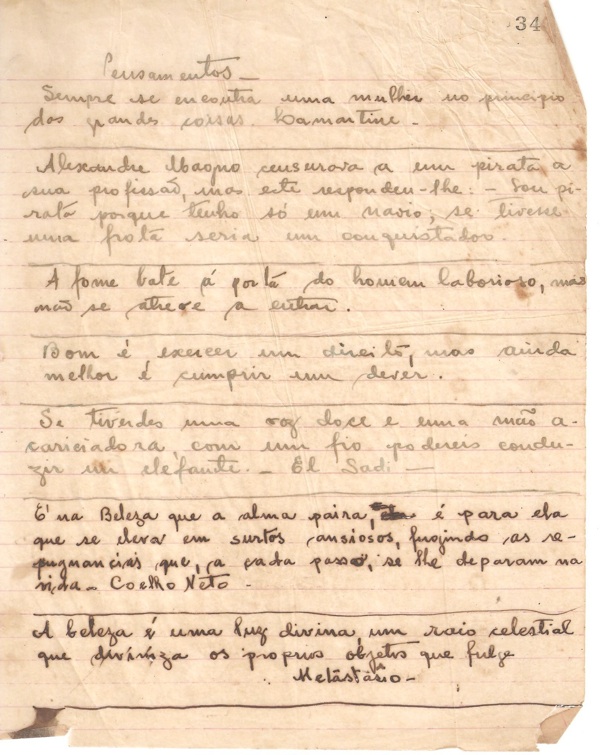 34
Pensamentos_
Sempre se encontra uma mulher no principio
das grandes coisas. Lamartine.
Alexandre Magno censurava a um pirata a
sua profissão, mas este respondeu-lhe: - Sou pi-
rata porque tenho só um navio, se tivesse
uma frota seria um conquistador.
A fome bate á porta do homem laborioso, mas
não se atreve a entrar.
Bom é exercer um direito, mas ainda
melhor é cumprir um dever.
Se tiverdes uma voz doce e uma mão a-
cariciadora, com um fio podereis condu-
zir um elefante. - El Sadi -
É na Beleza que a alma paira, é para ela
que se eleva em surtos ansiosos, fugindo as re-
pugnancias que, a cada passo, se lhe deparam na
vida. Coelho Neto -
A beleza é uma luz divina, um raio celestial
que diviniza os proprios objetos que fulge
Metástásio -